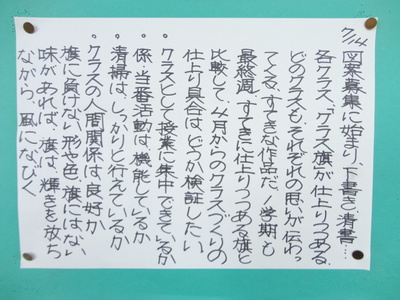 7/14
図案募集に始まり、下書き、清書……
各クラス、「クラス旗」が仕上りつつある。
どのクラスも、それぞれの思いが伝わっ
てくる、すてきな作品だ。1学期も
最終週。すてきに仕上りつつある旗と
比較して、4月からのクラスづくりの
仕上り具合は、どうか、検証したい。
・クラスとして授業に集中できているか
・係・当番活動は、機能しているか
・清掃は、しっかりと行えているか
・クラスの人間関係は良好か
旗に負けない形や色、旗にはない
味があれば、旗は、輝きを放ち
ながら、風になびく。